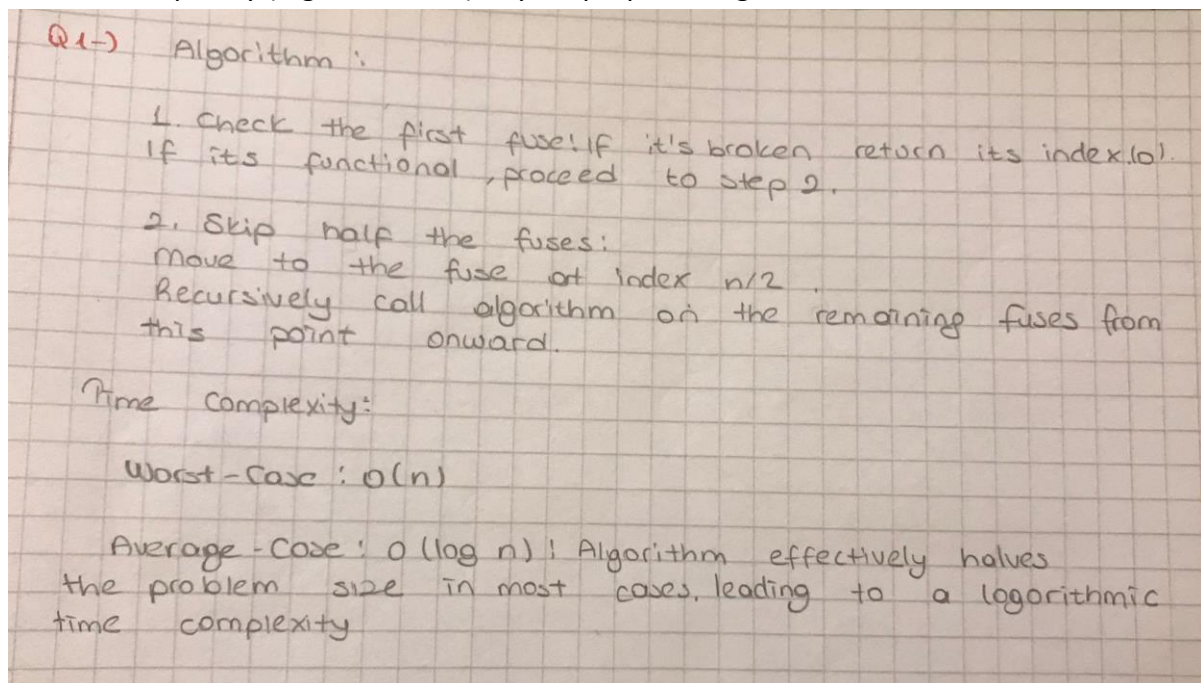 Q1-) Algorithm :
1. Check the first fuse: If it's broken return its index.(0).
If its functional, proceed to step 2.
2. Skip half the fuses:
Move to the fuse at index n/2 .
Recursively call algorithm on the remaining fuses from
this point onward.
Time Complexity:
Worst-Case : O(n)
Average-Case : O(log n) : Algorithm effectively halves
the problem size in most cases, leading to a logorithmic
time complexity